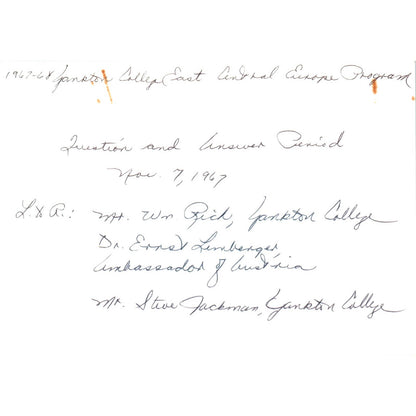 1967-68 Yankton College East Central Europe Program
Question and Answer Period
Nov. 7, 1967
L. to R.: Mr. Wm Rich, Yankton College
Dr. Ernst Lemberger
Ambassador of Austria
Mr. Steve Jackman, Yankton College